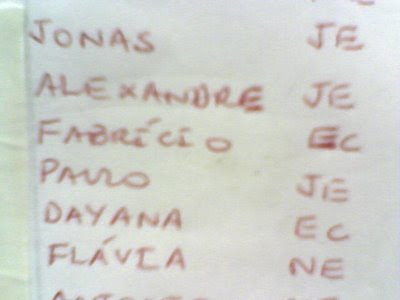 JONAS JE
ALEXANDRE JE
FABRÍCIO EC
PAULO JE
DAYANA EC
FLÁVIA NE